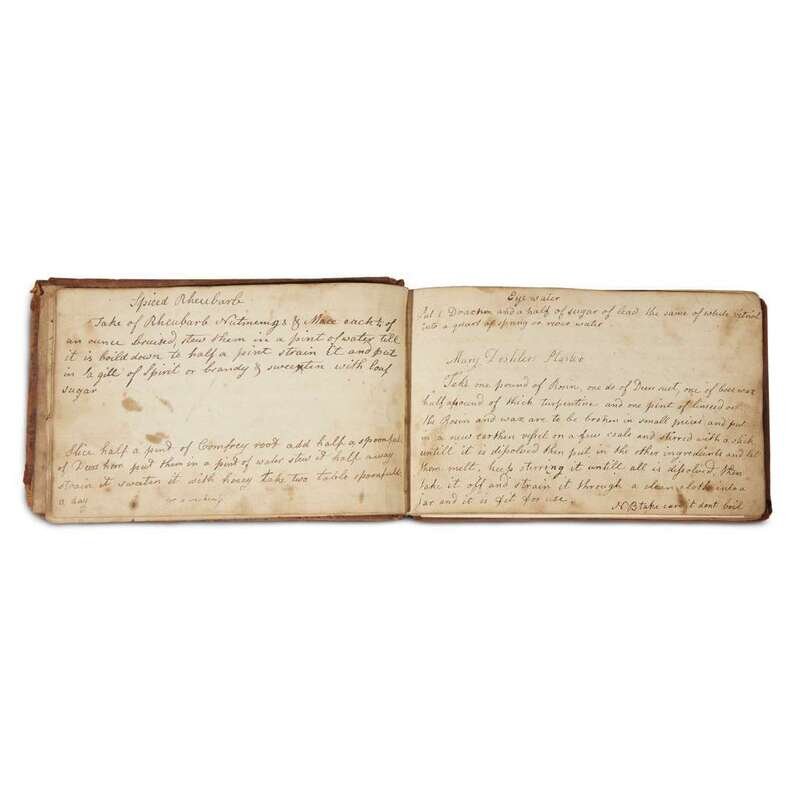 Spiced Rheubarb
Take of Rheubarb Nutmemgs & Mace each ½ of
an ounce bruised, stew them in a pint of water till
it is boild down to half a pint strain it and put
in ½ gill of Spirit or brandy & sweeten with loaf
sugar
Slice half a pint of Comfrey root add half a spoonful
of Deers horn put them in a pint of water stew it half away
strain it sweaten it with honey take two table spoonfulls
a day
Eye water
Put 1 Drachm and a half of sugar of lead the same of white vitriol
into a quart of spring or river water
Mary Plaster
Take one pound of Rosin, one do of Deer suet, one of bees wax
half a pound of thick turpentine and one pint of linseed oil
the Rosin and wax are to be broken in small pieces and put
in a new earthen vessel on a few coals and stirred with a stick
untill it is disolved then put in the other ingredients and let
them melt, keep stirring it untill all is disolved, then
take it off and strain it through a clean cloth into a
jar and it is fit for use.
NB take care it dont boil